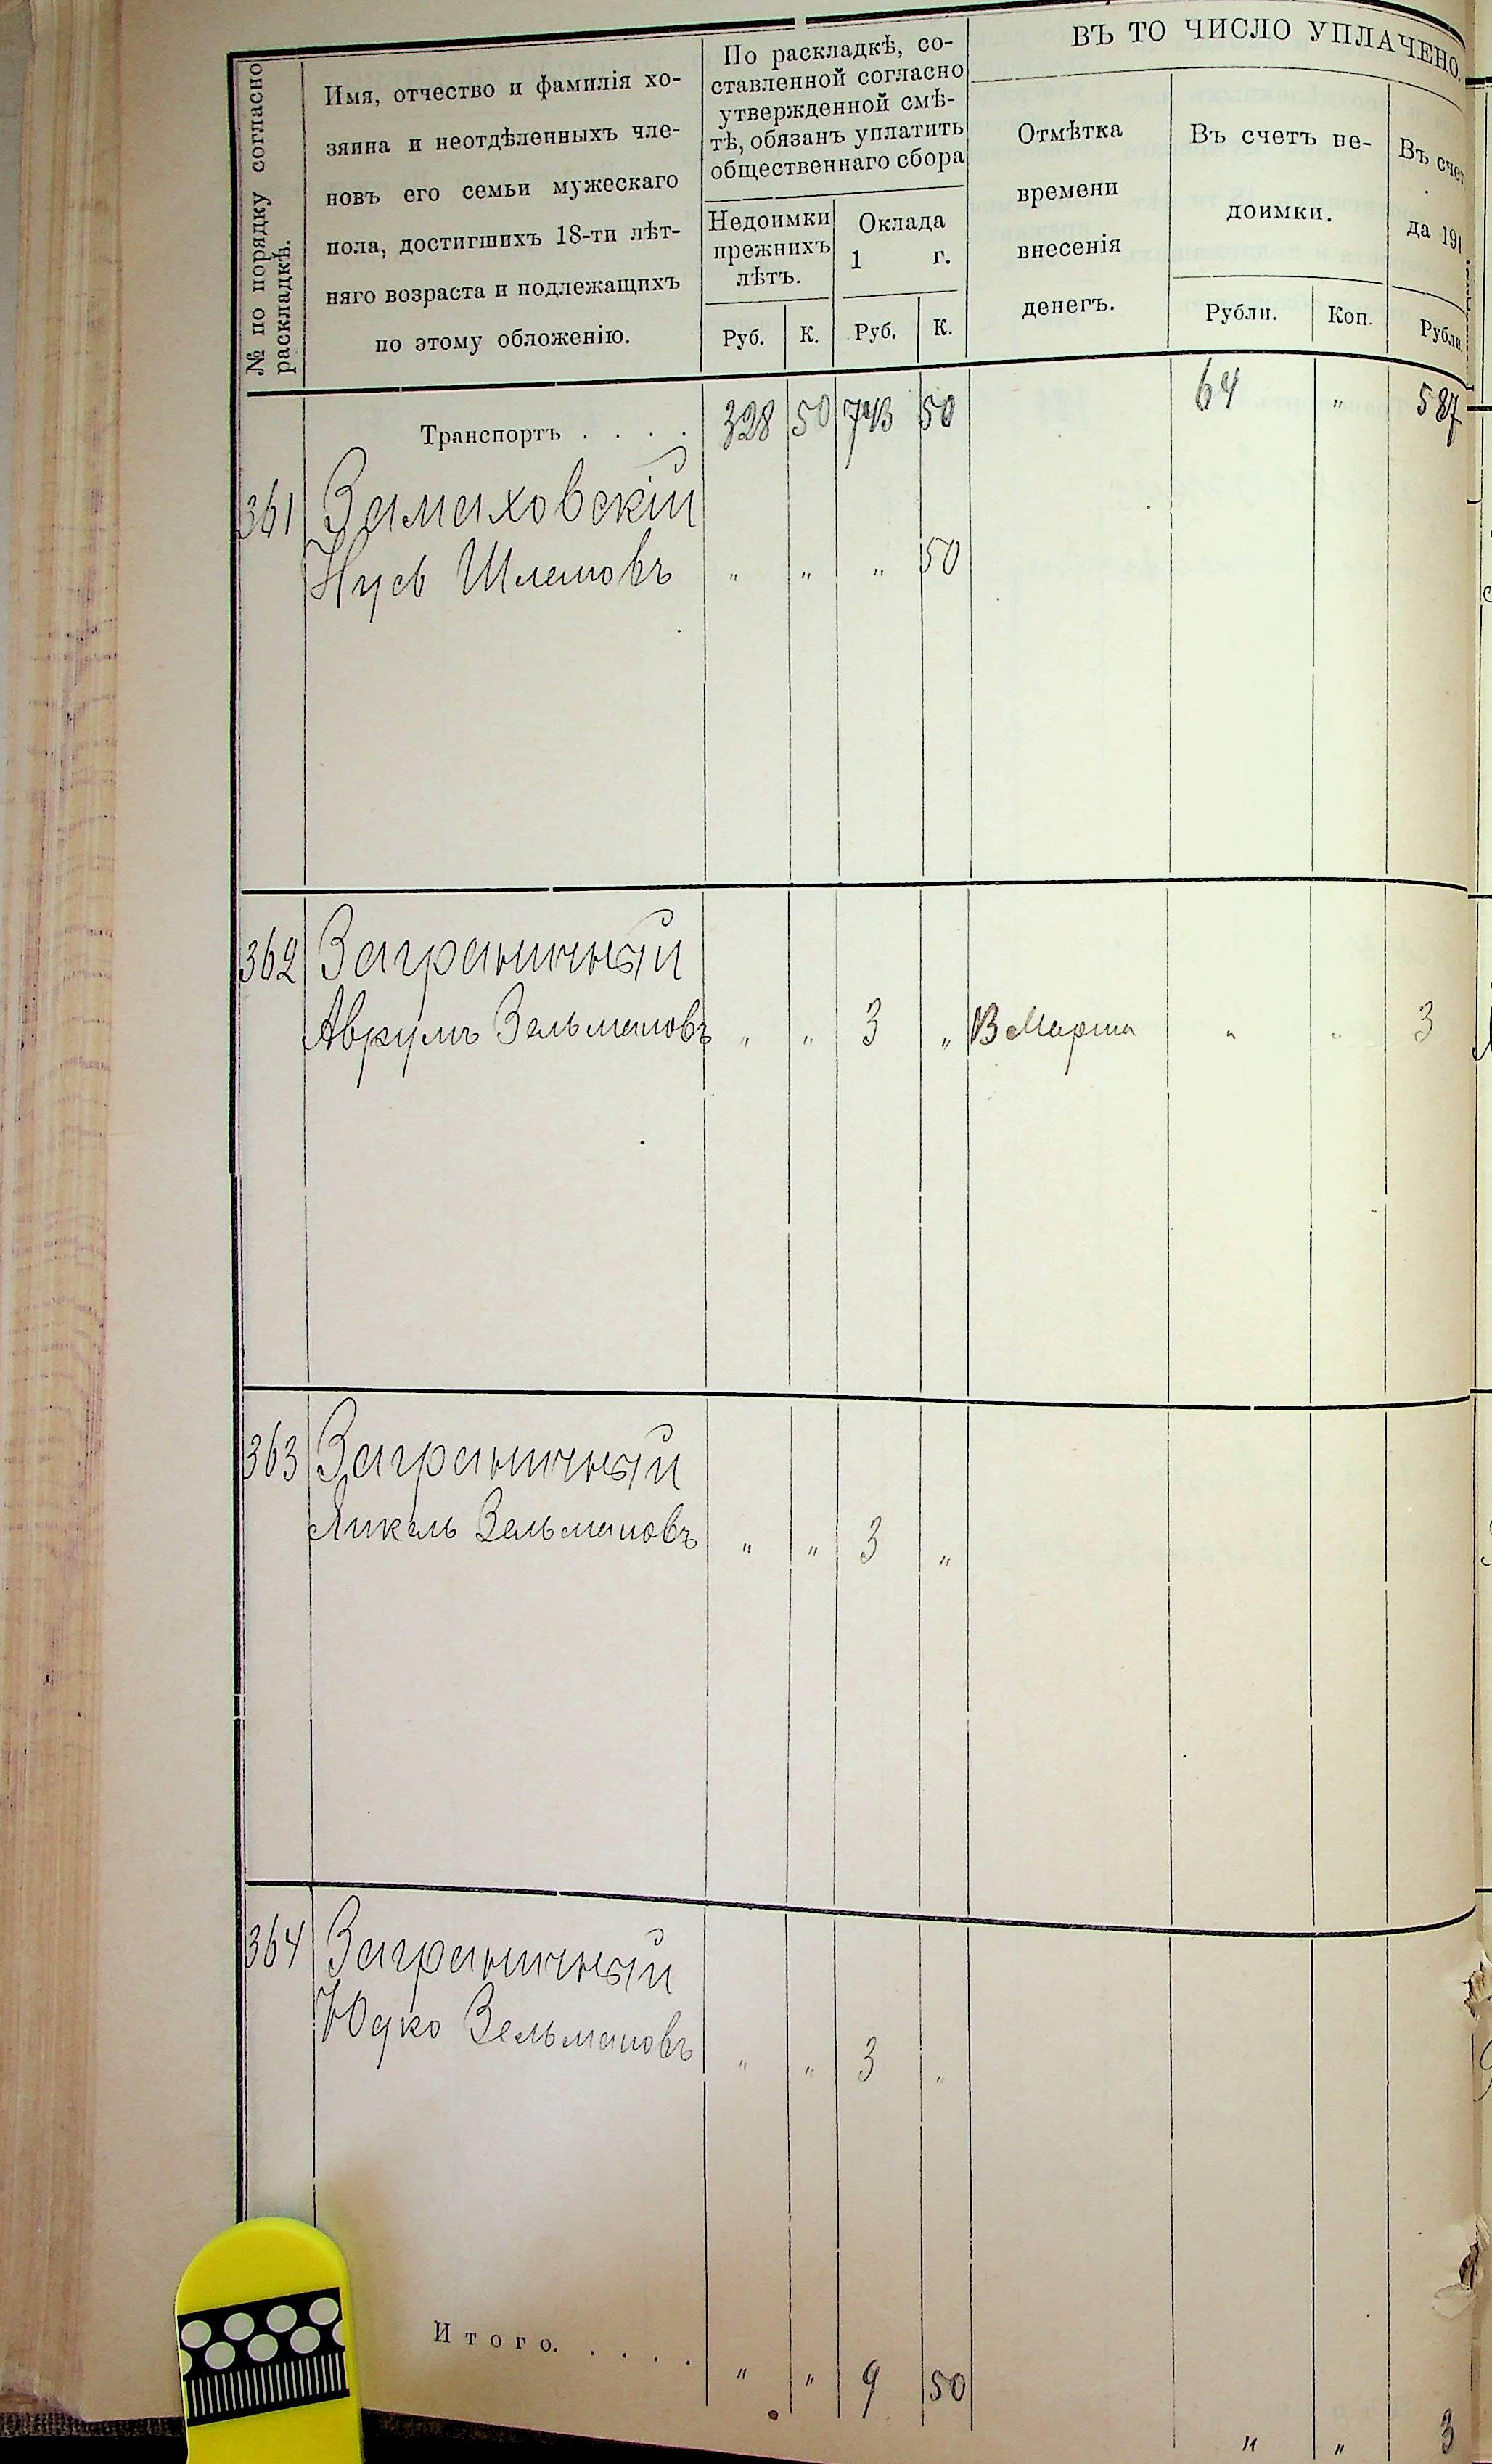 № по порядку согласно
раскладкѣ.
Имя, отчество и фамилія хо-
зяина и неотдѣленныхъ чле-
новъ его семьи мужескаго
пола, достигшихъ 18-ти лѣт-
няго возраста и подлежащихъ
по этому обложенію.
По раскладкѣ, со-
ставленной согласно
утвержденной смѣ-
тѣ, обязанъ уплатить
общественнаго сбора
Недоимки
прежнихъ
лѣтъ.
Оклада
1 г.
Руб. К. Руб. К.
ВЪ ТО ЧИСЛО УПЛАЧЕНО.
Отмѣтка
времени
внесенія
денегъ.
Въ счетъ не-
доимки.
Рубли. Коп.
Въ счет
да 191
Рубли.
Транспортъ . . . . 328 50 743 50 64 " 587
361 Замаховскій
Нусь Шлемовъ " " " 50
362 Заграничный
Аврумъ Зельмановъ " " 3 " 13 Марта " " 3
363 Заграничный
Янкель Зельмановъ " " 3 "
364 Заграничный
Юдко Зельмановъ " " 3 "
Итого. . . . . " " 9 50 " " 3